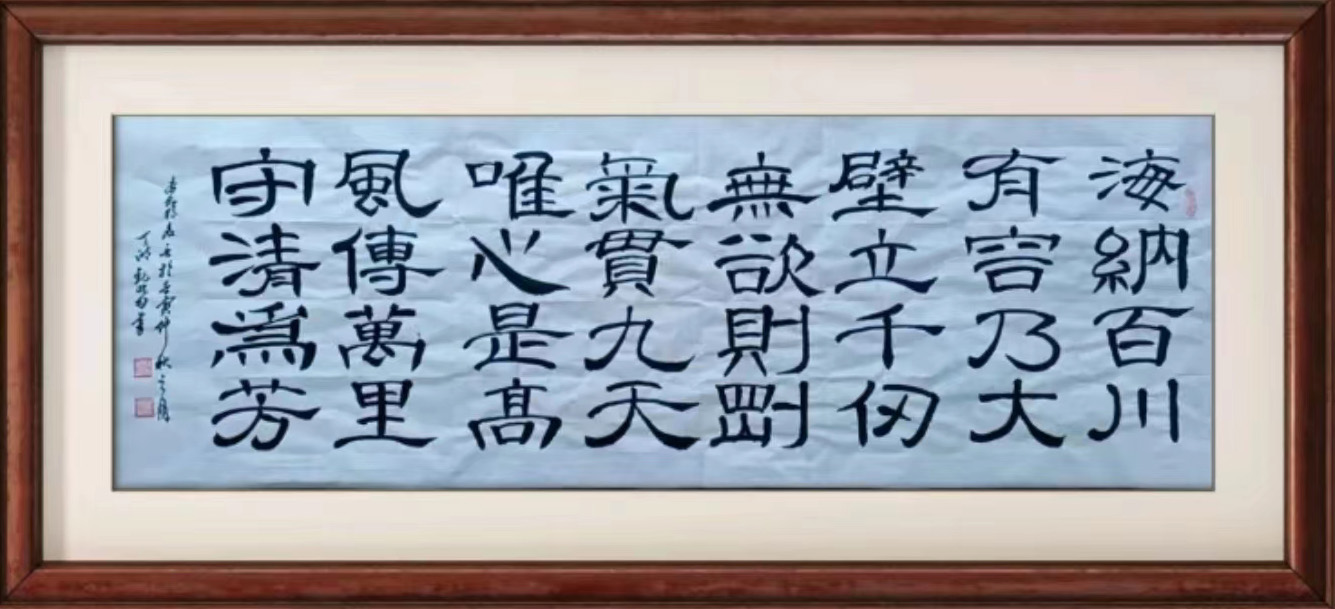 海納百川
有容乃大
壁立千仞
無欲則剛
氣貫九天
唯心是高
風傳萬里
守清為芳
壬寅仲秋之月
書